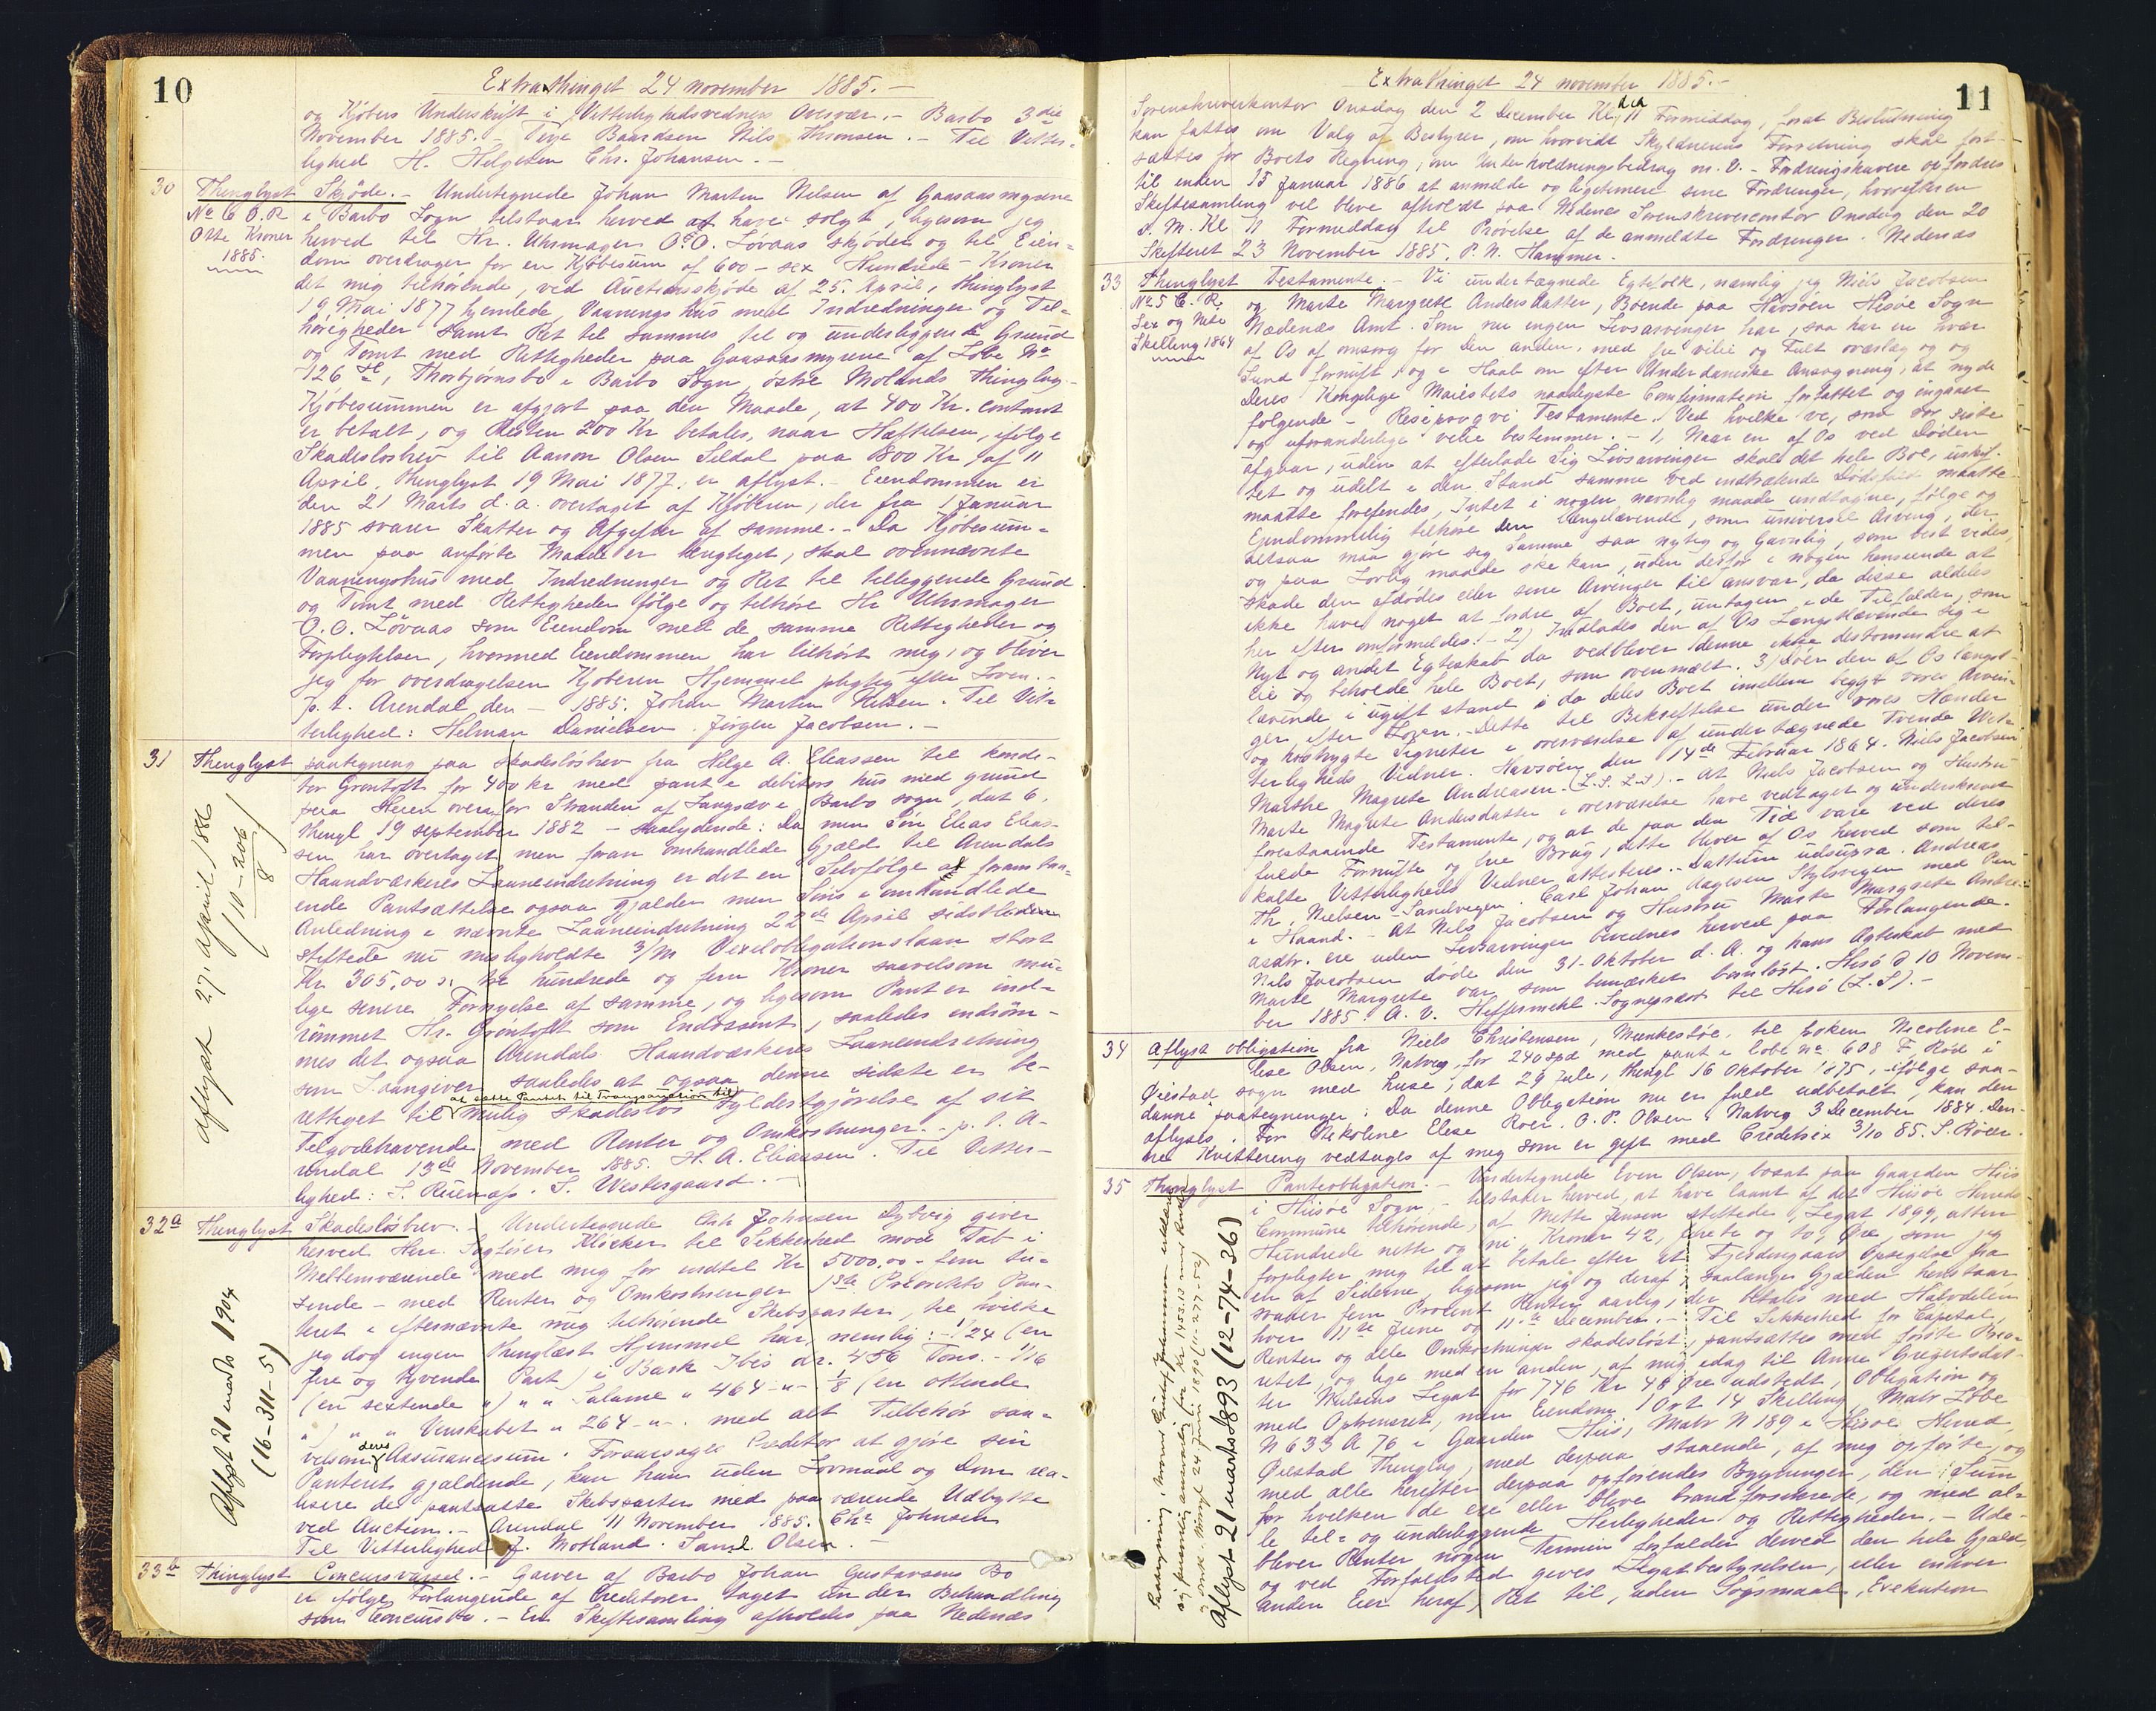 10
Extrathinget 24 november 1885.-
og Kjöbers Underskrift i Vitterlighedsvedners Overvær.- Barbo 3die
November 1885.- Terje Baardsen Nils Thronsen.- Til Vitter-
lighed H. Helgesen Chr. Johansen.-
30 Thinglyst Skjöde.- Undertegnede Johan Marten Nilsen af Gaasaasmyrene
No 6 O.R i Barbo Sogn tilstaar herved at have solgt, ligesom jeg
Otte Kroner herved til Hr. Uhrmager O. O. Lövaas skjöder og til Eien-
1885. dom overdrager for en Kjöbesum af 600 - sex Hundrede - Kroner
det mig tilhörende, ved Auctionsskjöde af 25. April, thinglyst
19 Mai 1877 hjemlede Vaaningshus med Indredninger og Til-
hörigheder samt Ret til sammes til og underliggende Grund
og Tomt med Rettigheder paa Gaasaasmyrene af Löbe No
126 , Thorbjörnsbo i Barbo Sogn, östre Molands Thinglag.-
Kjöbesummen er afgjort paa den Maade, at 400 Kr. contant
er betalt, og Resten 200 Kr betales, naar Hæftelsen, ifölge
Skadeslosbrev til Aanon Olsen Seldal paa 800 Kr, af 11
April, thinglyst 19 Mai 1877, er aflyst.- Eiendommen er
den 21 Marts d. a. overtaget af Kjöberen, der fra 1 Januar
1885 svarer Skatter og Afgifter af samme.- Da Kjöbesum-
men paa anförte Maade er berigtiget, skal ovennævnte
Vaaningshus med Indredninger og Ret til tilliggende Grund
og Tomt med Rettigheder fölge og tilhöre Hr Uhrmager
O. O. Lövaas som Eiendom med de samme Rettigheder og
Forpligtelser, hvormed Eiendommen har tilhört mig, og bliver
jeg for overdragelsen Kjöberen Hjemmel pligtig efter Loven.-
p. t. Arendal den - 1885. Johan Marten Nilsen. Til Vit-
terlighed: Helman Danielsen. Jörgen Jacobsen.-
31 Thinglyst paategning paa skadeslösbrev fra Helge A. Eliassen til kondi-
tor Gröntoft for 400 kr med pant i debitors hus med grund
paa Heien ovenfor Stranden af Langsæv i Barbo sogn, dat 6,
thingl 19 september 1882 - saalydende: Da min Sön Elias Elias-
sen har overtaget min foran omhandlede Gjæld til Arendals
Haandværkeres Laaneindretning er det en Selvfölge at foranstaa-
ende Pantsættelse ogsaa gjælder min Söns i omhandlede
Anledning i nævnte Laaneindretning 22de April sidstleden
stiftede nu misligholdte 3/m Vexelobligationslaan stort
Kr 305,00 ɔ: tre hundrede og fem Kroner saavelsom mu-
lige senere Fornyelse af samme, og ligesom Pant er ind-
römmet Hr. Gröntoft som Endossent, saaledes indröm-
mes det ogsaa Arendals Haandværkeres Laaneindretning
som Laangiver saaledes at ogsaa denne sidste er be-
at sætte Pantet til Tvangsauction til
rettiget til mulig skadeslös Fyldestgjörelse af sit
Tilgodehavende med Renter og Omkostninger.- p. t. A-
rendal 13de November 1885. H. A. Eliassen. Til Vitter-
lighed: S. Westergaard.-
aflyst 27. april 1886
(10-206/8)
32a Thinglyst Skadeslösbrev.- Undertegnede Chr Johnsen Dybvig giver
herved Herr Sagförer Klöcker til Sikkerhed mod Tab i
Mellemværende med mig for indtil Kr 5000,00 - fem tu-
sende - med Renter og Omkostninger 1ste Prioritets Pan-
teret i efternævnte mig tilhörende Skibsparter, til hvilke
jeg dog ingen thinglæst Hjemmel har, nemlig:- 1/24 (en
fire og tyvende Part) i Bark Ibis dr. 456 Tons.- 1/16
(en sextende ") " " Salame " 464 -"- 1/8 (en ottende
") " " Venskabet " 264 -"-. med alt Tilbehör saa-
velsom deres Assurancesum. Foraarsages Creditor at gjöre sin
Panteret gjældende, kan han uden Lovmaal og Dom rea-
lisere de pantsatte Skibsparter med paaværende Udbytte
ved Auction.- Arendal 11 November 1885. Chr Johnsen
Til Vitterlighed J. Motland. Saml Olsen.-
Aflyst 20 marts 1904
(16-311-5)
33b Thinglyst Concursvarsel.- Garver af Barbo Johan Gustavsens Bo
er ifölge Forlangende af Creditorer taget under Behandling
som Concursbo.- En Skiftesamling afholdes paa Nedenæs
11
Extrathinget 24 november 1885.-
Sorenskriverkontor Onsdag den 2 December Kl 11 Formiddag, forat Beslutning
kan fattes om Valg af Bestyrer, om hvorvidt Skyldnerens Forretning skal fort-
sættes for Boets Regning, om Underholdningsbidrag m. V.- Fordringshavere opfordres
til inden 15 Januar 1886 at anmelde og legitimere sine Fordringer, hvorefter en
Skiftesamling vil blive afholdt paa Nedenæs Sorenskrivercontor Onsdag den 20
s. M. Kl 11 Formiddag til Prövelse af de anmeldte Fordringer. Nedenæs
Skifteret 23 November 1885. P. N. Hammer.
33 Thinglyst Testamente.- Vi undertægnede Egtefolk, namlig jeg Niels Jacobsen
No 5 C. R og Marte Margrete Anders datter, Boende paa Havsöen Hisöe Sogn
Sex og Nite Nædenæs Amt. Som nu ingen Livsarvinger har, saa har en hvær
Skelling 1864 af Os af omsorg for den anden, med frie vilie og Fult overlæg og
Sund fornuft, og i Haab om efter Underdanigste Ansøgning, at nyde
Deres Kongelige Maiestets naadigste Confirmation forfattet og ingaaet
folgende - Resiproqvi Testamente. Ved hvilke vi, som vor siste
og uforanderlige vilie bestemmer.- 1, Naar en af Os ved Döden
afgaar, uden at efterlade Sig Livsarvinger skal det hele Boe, uskif-
tet og udelt i den Stand samme ved indtræfende Dödsfald maatte
maatte forefindes, Intet i nogen navnlig maade undtagne, følge og
Ejendommelig tilhöre den længstlævende, som universel Arving, der
altsaa maa gjöre sig Samme saa nytig og Gavnlig, som best vides,
og paa Lovlig maade ske kan, uden derfor i nogen henseende at
skade den afdödes eller sine Arvinger til ansvar, da disse aldeles
ikke have noget at fordre af Boet, untagen i de Tilfælder, som
her efter omformeldes.- 2) Indlades den af Os Længstlævende sig i
Nyt og andet Egteskab da vedbliver denne ikke destomindre at
eie og beholde hele Boet, som ovenmælt. 3) Döer den af Os længst-
lævende i ugift stand, da deles Boet imellem begge vores Arvin-
ger efter Loven.- Dette til Bekreftelse under vores Hænder
og hostrygte Signeter i overværelse af undertægnede Tvende Vit-
terligheds Vidner. Havsöen den 14de Februar 1864. Niels Jacobsen
Marthe Magrete Andreasen.(L.S. L.S).- At Niels Jacobsen og Hustru
Marte Magrete Andersdatter i overværelse have vedtaget og underskrevet
forestaaende Testamente, og at de paa den Tid vare ved deres
fulde Fornufts og frie Brug, dette bliver af Os herved som til-
kalte Vitterligheds Vidner attesteres.. Dattum udsupra. Andreas
Th. Nielsen - Sandvigen. Carl Johan Aagesen Stylsvigen med Pen
i Haand.- At Nils Jacobsen og Hustru Marte Margrete Andre-
asdtr. ere uden Livsarvinger bevidnes herved paa Forlangende.
Nils Jacobsen döde den 31. Oktober d. A. og hans Ægteskab med
Marte Margrete var som bemærket barnlöst. Hisö d 10 Novem-
ber 1885. A. V. Heffermehl. Sogneprest til Hisö (L. S).-
34 Aflyst obligation fra Niels Christensen, Munkestöe, til pöken Nicoline E-
lise Olsen, Natvig, for 240 spd med pant i löbe no 608 F Röd i
Öiestad sogn med huse, dat 29 Juli, thingl 16 Oktober 1875, ifölge saa-
danne paategninger: Da denne Obligation nu er fuld udbetalt, kan den
aflyses. For Nikoline Elise Roer. O. P. Olsen. Natvig 3 December 1884. Den-
ne Kvittering vedtages af mig som er gift med Creditrix 3/10 85. S. Röer.
35 Thinglyst Panteobligation.- Undertegnede Even Olsen, bosat paa Gaarden Hiis
i Hisöe Sogn, tilstaaer herved, at have laant af det Hisöe Herreds
Commune tilhörende, af Mette Jensen stiftede, Legat 1899, atten
Hundrede nitti og ni, Kroner 42, firti og to, Öre, som jeg
forpligter mig til at betale efter et Fjerdingaars Opsigelse fra
en af Siderne, ligesom jeg og deraf, saalænge Gjælden henstaar
svarer fem Procent Renter aarlig, der betales med Halvdelen
hver 11te Juni og 11te December.- Til Sikkerhed for Capital,
Renter og alle Omkostninger skadeslöst, pantsættes med förste Prio-
ritet, og lige med en anden, af mig idag til Anne Gregersdat-
ter Nielsens Legat for 746 Kr 48 Öre udstedt, Obligation og
med Opbruset, min Eiendom 1 Ort 14 Skelling, Matr Löbe
N 633 A 76 i Gaarden Hiis, Matr N 189 i Hisöe Herred,
Öiestad Thinglag, med derpaa staaende, af mig opförte, og
med alle herefter derpaa opförendes Bygninger, den Sum
for hvilken de ere eller blive brandforsikrede, og med al-
le til- og underliggende Herligheder og Rettigheder.- Ude-
bliver Renter nogen Termin forfalder derved den hele Gjæld,
og ved Forfaldstid gives Legatbestyrelsen, eller enhver
anden Eier heraf, Ret til, uden Sögsmaal, Exekution
Aflyst 21 marts 1893 (12-74-36)